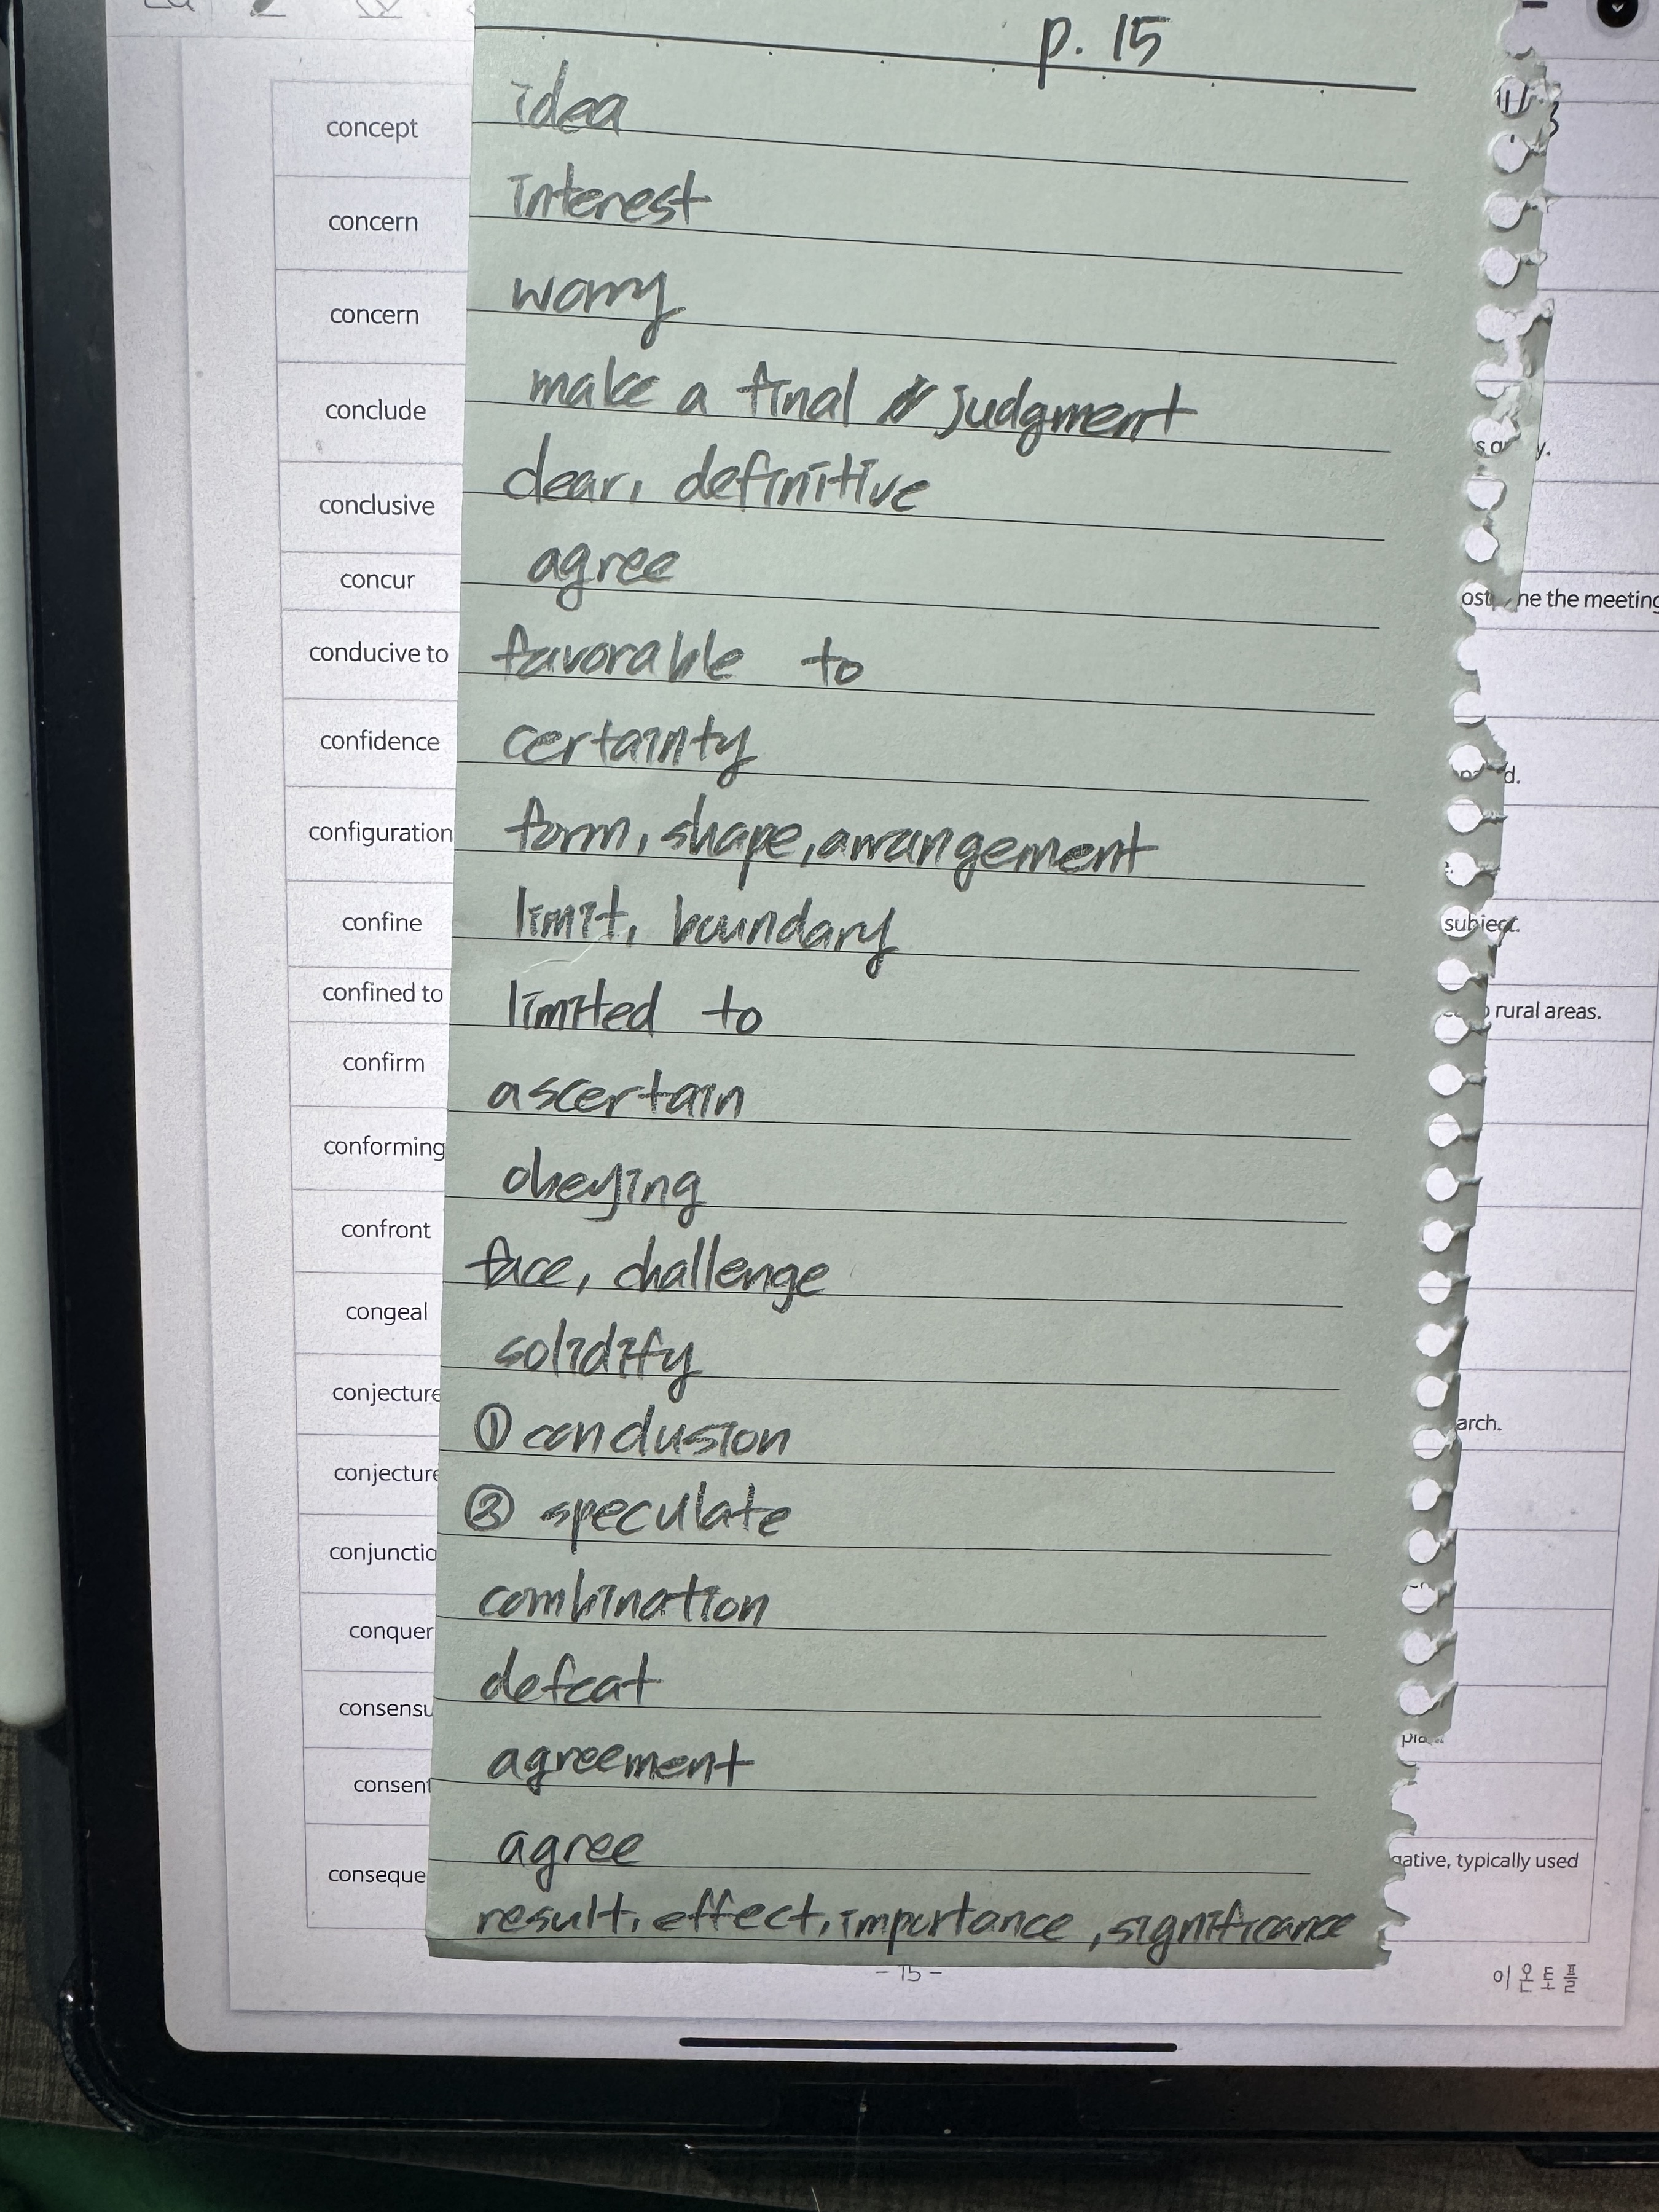 p. 15
concept idea
concern interest
concern worry
conclude make a final judgment
conclusive clear, definitive
concur agree
ne the meeting
conducive to favorable to
confidence certainty
d.
configuration form, shape, arrangement
confine limit, boundary
subject.
confined to limited to
rural areas.
confirm ascertain
conforming obeying
confront face, challenge
congeal solidify
conjecture ① conclusion
arch.
conjecture ② speculate
conjunctio combination
conquer defeat
consensu agreement
consent agree
conseque result, effect, importance, significance
gative, typically used
- 15 -
이온토플